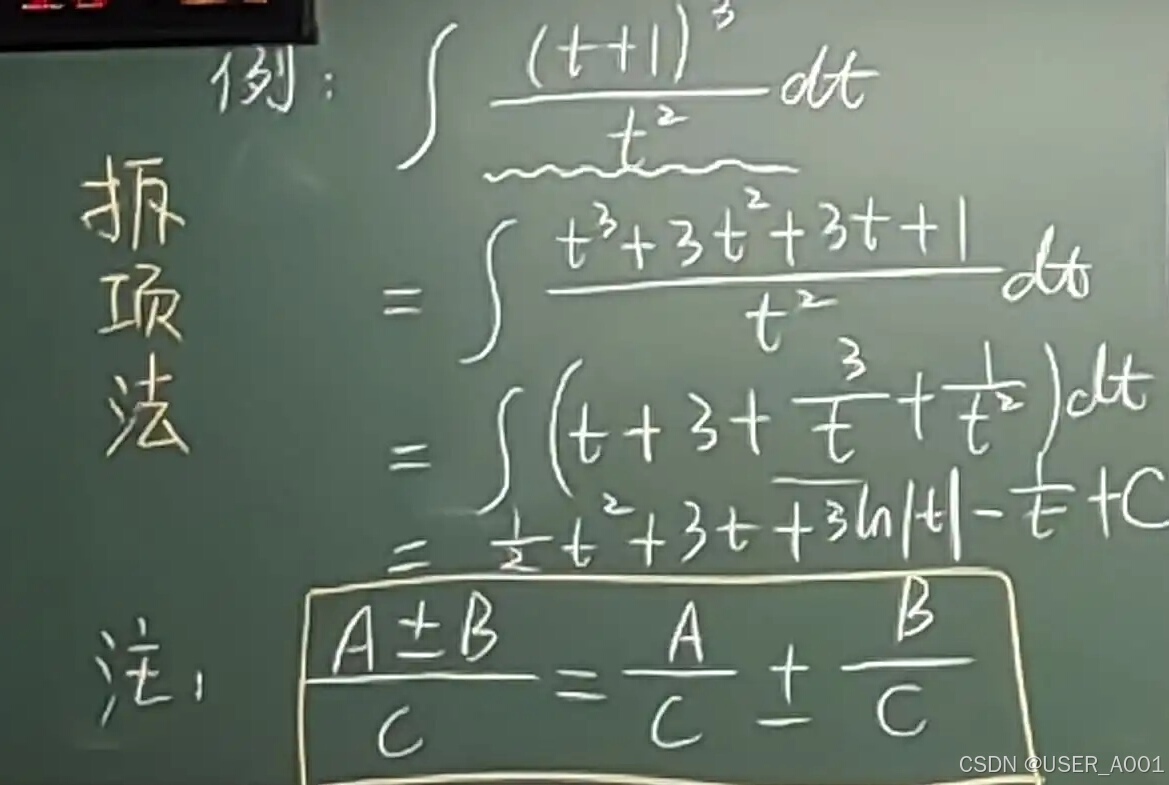 例: ∫ (t+1)³/t² dt
拆项法
= ∫ (t³+3t²+3t+1)/t² dt
= ∫ (t+3+3/t+1/t²)dt
= 1/2 t²+3t+3ln|t|-1/t+C
注: (A±B)/C = A/C ± B/C
CSDN @USER_A001